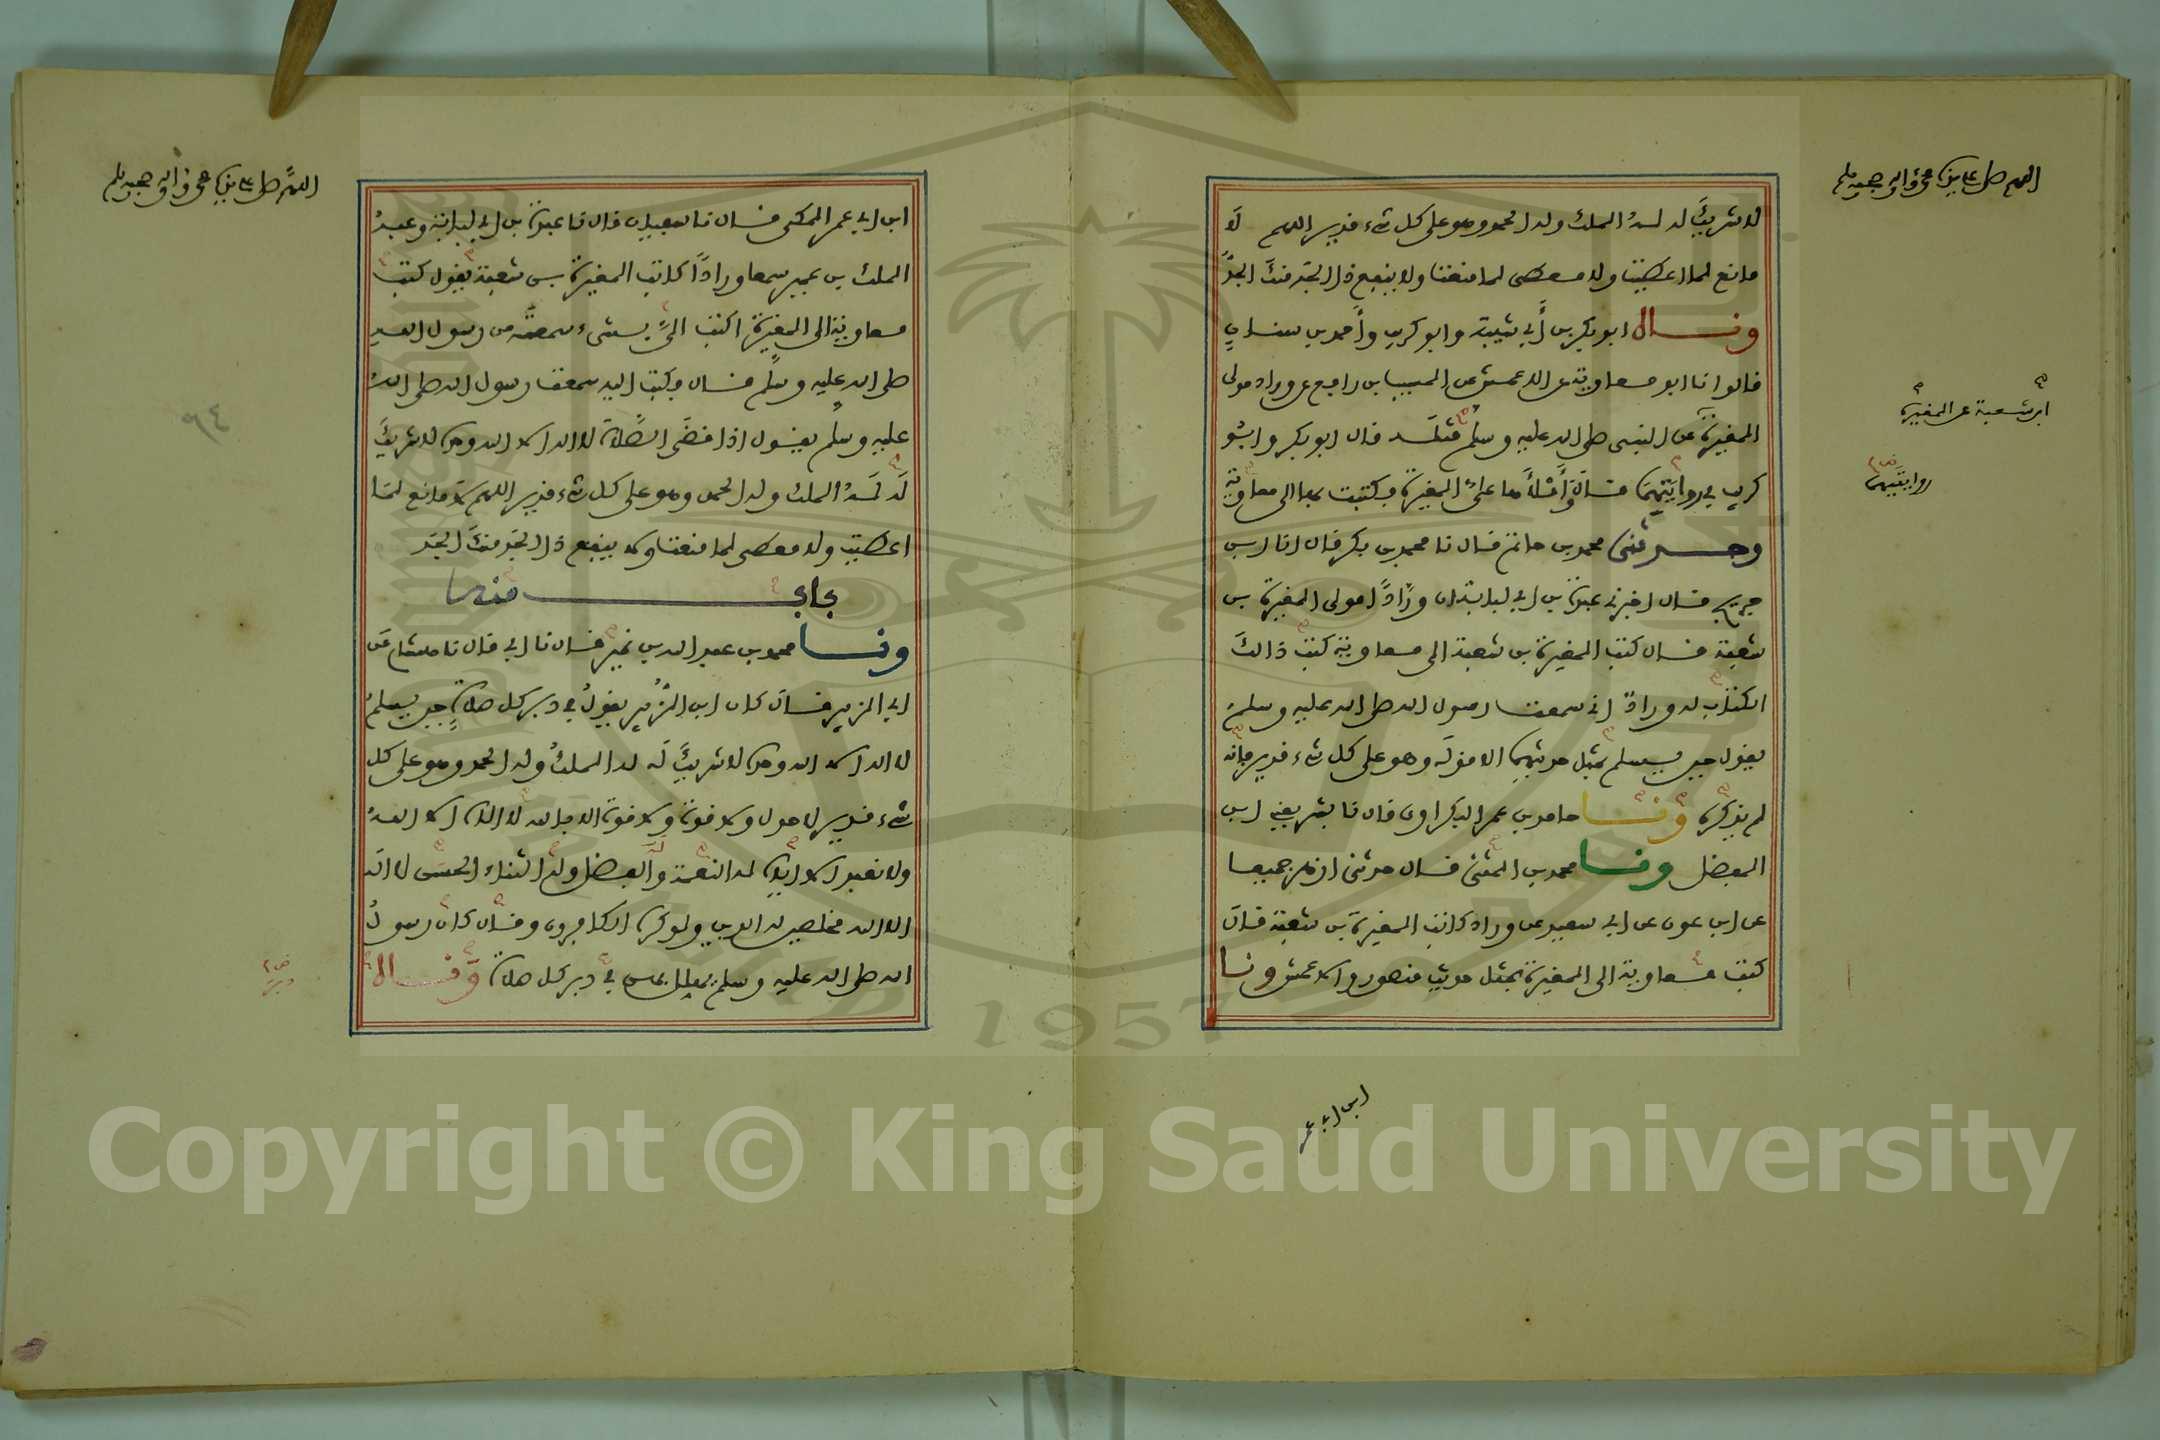 اللهم صل على سيدنا محمد وآله وصحبه وسلم
لا شريك له له الملك وله الحمد وهو على كل شيء قدير اللهم لا
مانع لما اعطيت ولا معطى لما منعت ولا ينفع ذا الجد منك الجدُّ
ونـــا ابو بكر بن أبي شيبة وابو كريب وأحمد بن سنان
قالوا نا ابو معاوية عن الاعمش عن المسيب بن رافع عن وراد مولى
المغيرة عن النبى صلى الله عليه وسلم مثله قال ابو بكر وابو
كريب في روايتهما قال وأملاها علىَّ المغيرة فكتبت بها الى معاوية
وحدثنى محمد بن حاتم قال نا محمد بن بكر قال انا ابن
جريج قال اخبرني عبدة بن ابي لبابة ان ورَّادًا مولى المغيرة بن
شعبة قال كتب المغيرة بن شعبة الى معاوية كتب ذالك
الكتاب له وراد اني سمعت رسول الله صلى الله عليه وسلم
يقول حين يسلم بمثل حديثهما الا قوله وهو على كل شيء قدير فإنه
لم يذكره ونـــا حامد بن عمر البكراوي قال نا بشر يعني ابن
المفضل ونـــا محمد بن المثنى قال حدثني ازهر جميعا
عن ابن عون عن ابي سعيد عن وراد كاتب المغيرة بن شعبة قال
كتب معاوية الى المغيرة بمثل حديث منصور والاعمش ونا
ابن شعبة عن المغيرة
روايتيهما
ابن ابي عمر
اللهم صل على سيدنا محمد وآله وصحبه وسلم
ابن ابي عمر المكى قال نا سفيان قال نا عبدة بن ابي لبابة وعبدُ
الملك بن عمير سمعا ورادًا كاتب المغيرة بن شعبة يقول كتب
معاوية الى المغيرة اكتب الىَّ بشىء سمعته من رسول الله
صلى الله عليه وسلم قال فكتب اليه سمعت رسول الله صلى اللهُ
عليه وسلم يقول اذا قضى الصلاة لا اله الا الله وحده لا شريك
له له الملك وله الحمد وهو على كل شيء قدير اللهم لا مانع لما
اعطيت ولا معطى لما منعت ولا ينفع ذا الجد منك الجد
باب منه
ونـــا محمد بن عبد الله بن نمير قال نا ابي قال نا هشام عن
ابي الزبير قال كان ابن الزُّبير يقولُ في دبر كل صلاةٍ حين يسلمُ
لا اله الا الله وحده لا شريك له له الملكُ وله الحمد وهو على كل
شيء قدير لا حول ولا قوة ولا قوة الا بالله لا اله الا اللهُ
ولا نعبد الا اياه له النعمة وله الفضل وله الثناء الحسن لا اله
الا الله مخلصين له الدين ولو كره الكافرون وقال كان رسولُ
الله صلى الله عليه وسلم يهلل بهن في دبر كل صلاة ونـــا
٩٤